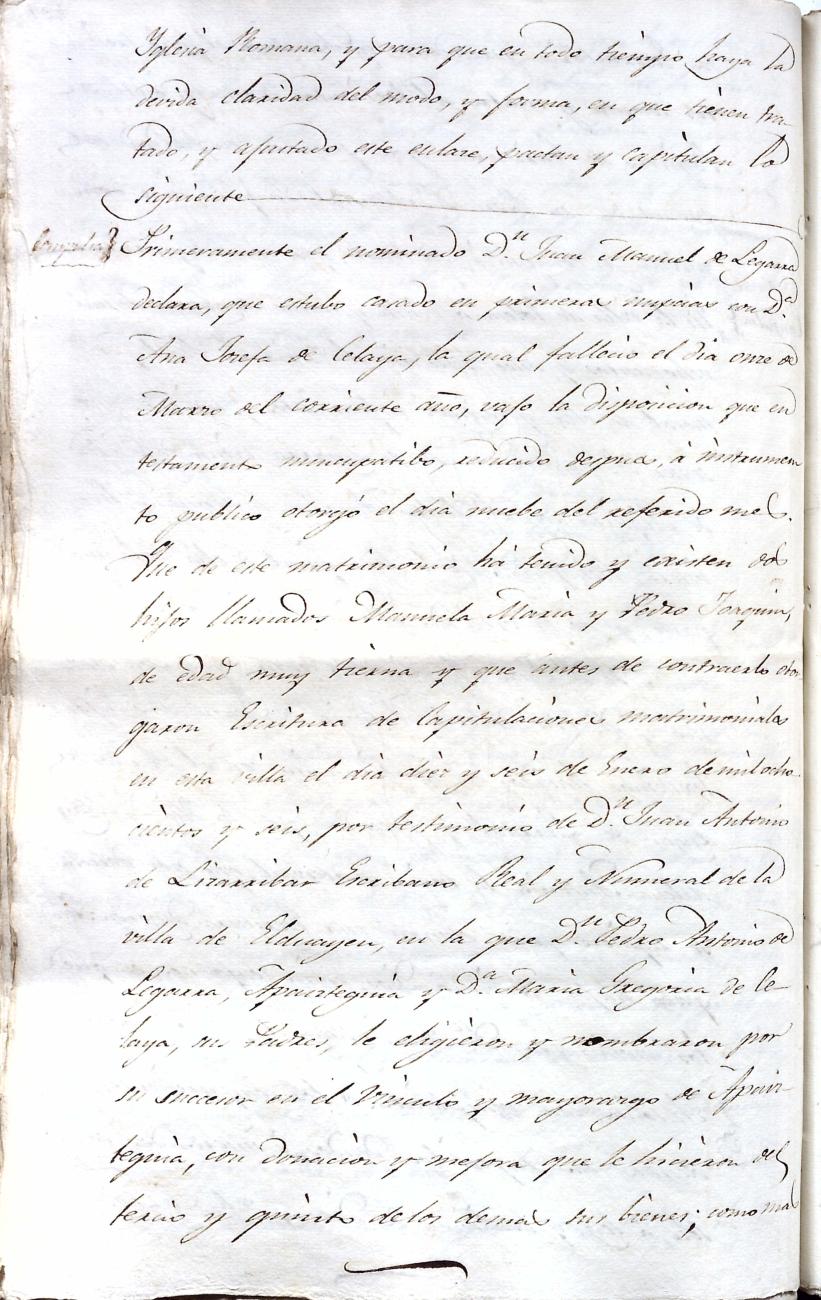 Yglesia Romana, y para que en todo tiempo haya la
devida claridad del modo, y forma, en que tienen tra-
tado, y ajustado este enlace, pactan y capitulan lo
siguiente
Primeramente el nominado D.n Juan Manuel de Legarra
declara, que estubo casado en primeras nupcias con D.a
Ana Josefa de Celaya, la qual fallecio el dia once de
Marzo del corriente año, vajo la disposicion que en
testamento nuncupatibo, reducido despues, á instrumen
to publico otorgó el dia nuebe del referido mes.
Que de este matrimonio há tenido y existen dos
hijos llamados Manuela Maria y Pedro Joaquin,
de edad muy tierna y que antes de contraerlo otor-
garon Escritura de Capitulaciones matrimoniales
en esta villa el dia diez y seis de Enero de mil ocho-
cientos y seis, por testimonio de D.n Juan Antonio
de Lizarribar Escribano Real y Numeral de la
villa de Elduayen, en la que D.n Pedro Antonio de
Legarra, Apaizteguia y D.a Maria Gregoria de Ce-
laya, sus Padres, le eligieron y nombraron por
su succesor en el Vinculo y mayorazgo de Apaiz-
teguia, con donacion y mejora que le hicieron del
tercio y quinto de los demas sus bienes; como mas